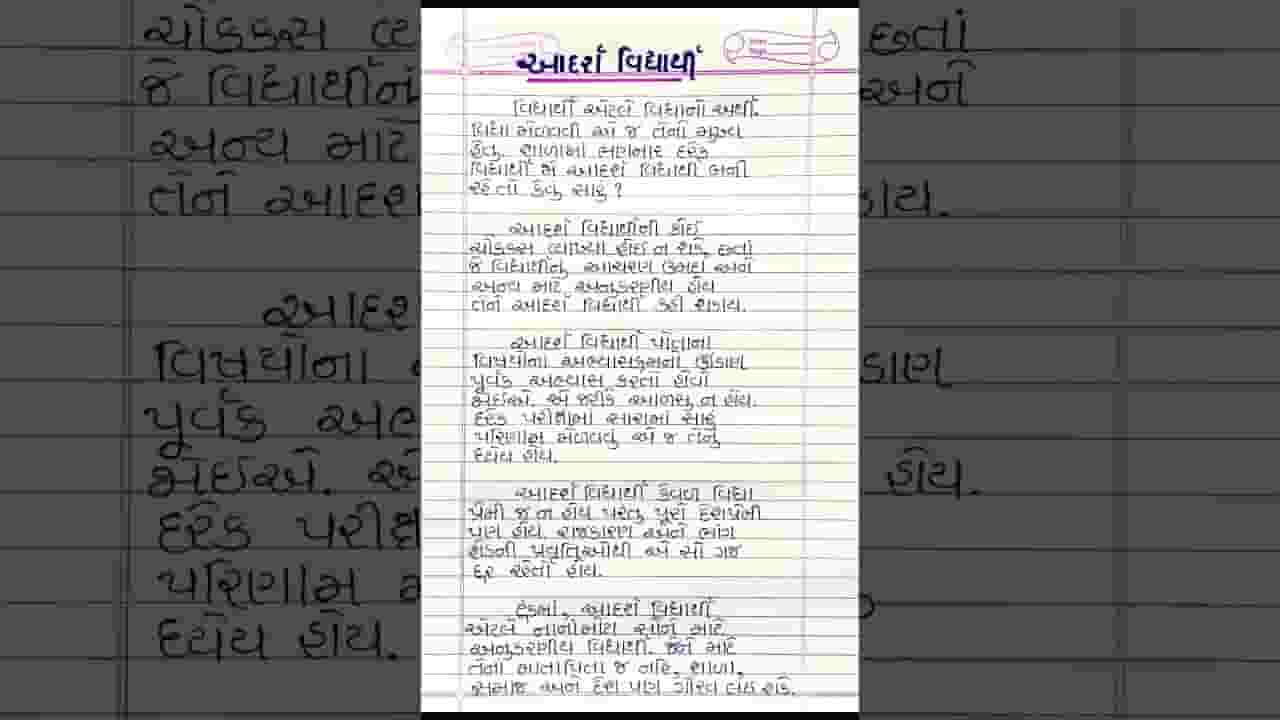 આદર્શ વિદ્યાર્થી
વિદ્યાર્થી એટલે વિદ્યાનો અર્થી.
વિદ્યા મેળવવી એ જ તેનો મુખ્ય
હેતુ. શાળામાં ભણનાર દરેક
વિદ્યાર્થી જો આદર્શ વિદ્યાર્થી બની
રહે તો કેવું સારું ?
આદર્શ વિદ્યાર્થીની કોઈ
ચોક્કસ વ્યાખ્યા હોઈ ન શકે, છતાં
જે વિદ્યાર્થીનું આચરણ ઉમદા અને
અન્ય માટે અનુકરણીય હોય
તેને આદર્શ વિદ્યાર્થી કહી શકાય.
આદર્શ વિદ્યાર્થી પોતાના
વિષયોના અભ્યાસક્રમનો ઊંડાણ
પૂર્વક અભ્યાસ કરતો હોવો
જોઈએ. એ જરીકે આળસુ ન હોય.
દરેક પરીક્ષામાં સારામાં સારું
પરિણામ મેળવવું એ જ તેનું
ધ્યેય હોય.
આદર્શ વિદ્યાર્થી કેવળ વિદ્યા
પ્રેમી જ ન હોય પરંતુ પૂરો દેશપ્રેમી
પણ હોય. રાજકારણ અને ભાંગ
ફોડની પ્રવૃત્તિઓથી એ સો ગજ
દૂર રહેતો હોય.
ટૂંકમાં, આદર્શ વિદ્યાર્થી
એટલે નાનામોટા સૌને માટે
અનુકરણીય વિદ્યાર્થી. જેને માટે
તેનાં માતાપિતા જ નહિ, શાળા,
સમાજ અને દેશ પણ ગૌરવ લઇ શકે.